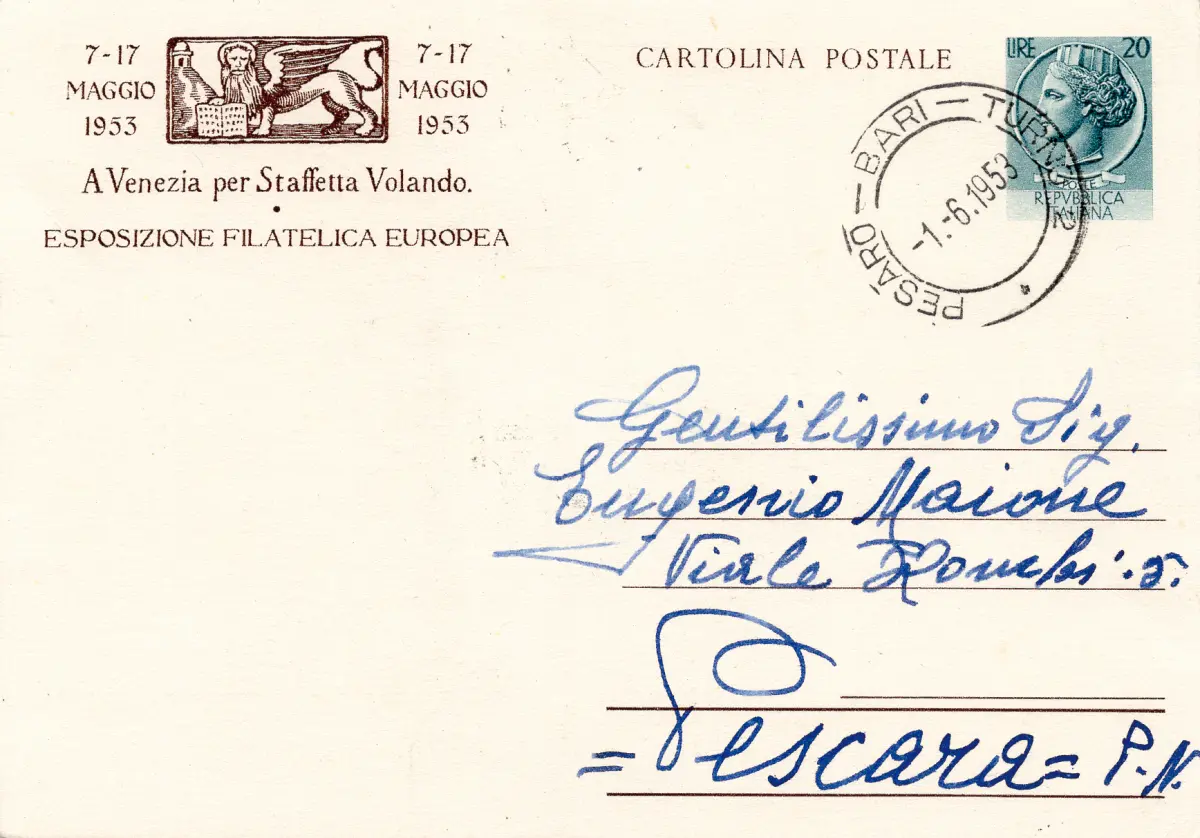 7-17
MAGGIO
1953
7-17
MAGGIO
1953
A Venezia per Staffetta Volando.
ESPOSIZIONE FILATELICA EUROPEA
CARTOLINA POSTALE
LIRE 20
POSTE
REPVBBLICA
ITALIANA
PESARO - BARI - TURNO 2
-1.-6.1953
Gentilissimo Sig.
Eugenio Maione
Viale
= Pescara = P.N.